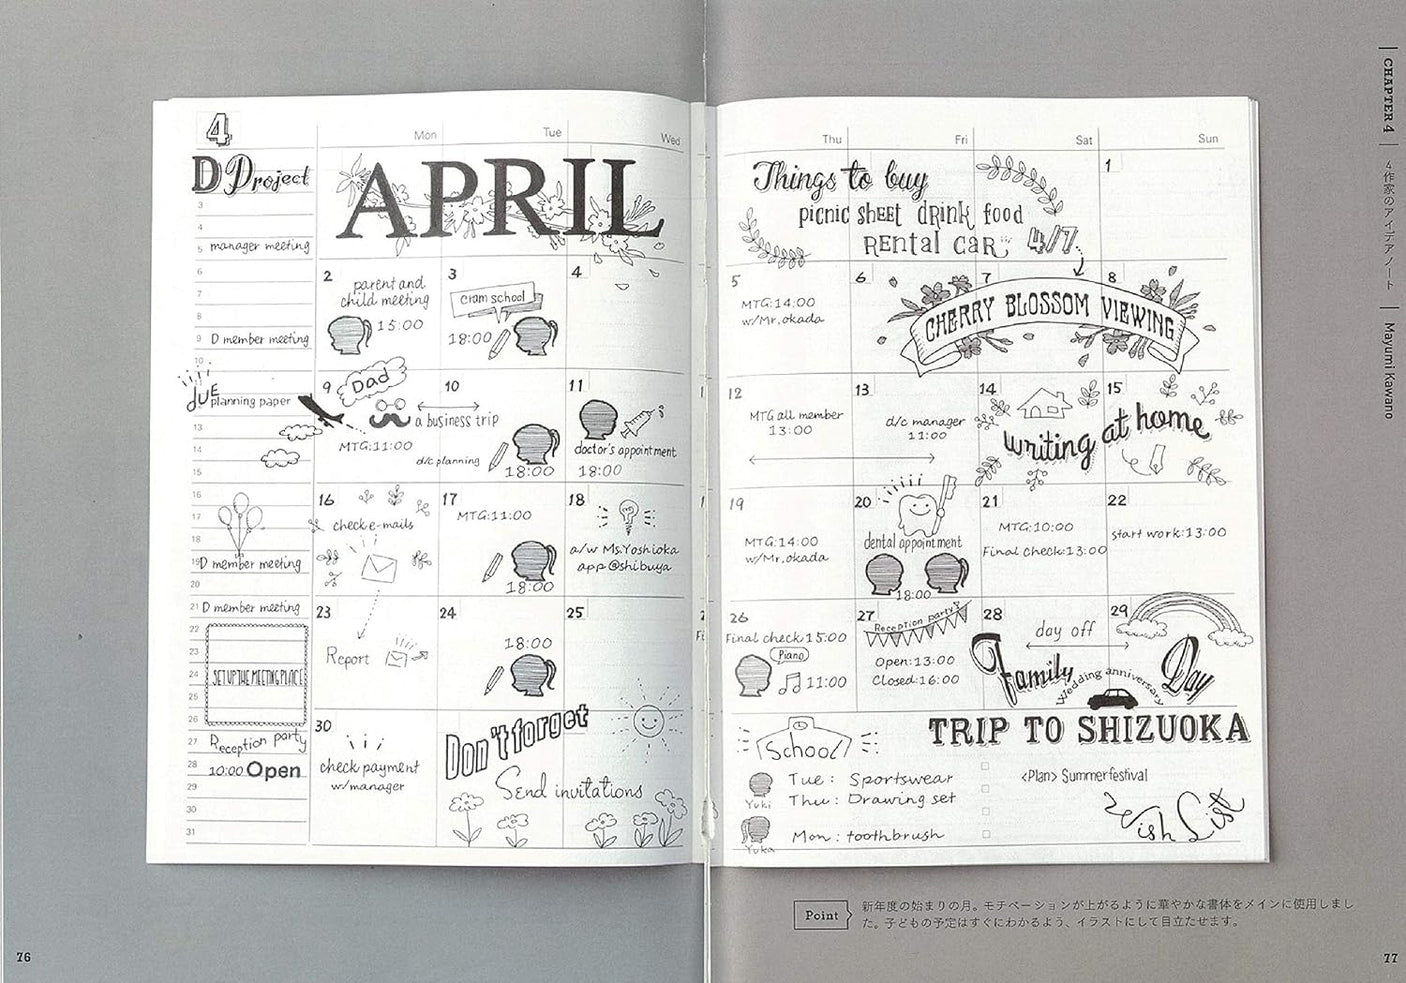 4
D Project
3
4
5 manager meeting
6
7
8
9 D member meeting
10
due planning paper
13
14
15
16
17
18
19 D member meeting
20
21 D member meeting
22
23
24 SET UP THE MEETING PLACE
25
26
27 Reception party
28 10:00 Open
29
30
31
Mon
Tue
Wed
APRIL
2
parent and
child meeting
15:00
3
cram school
18:00
4
9
Dad
a business trip
MTG:11:00
10
d/c planning
18:00
11
doctor's appointment
18:00
16
check e-mails
17
MTG:11:00
18:00
18
a/w Ms.Yoshioka
app @shibuya
23
Report
24
18:00
25
30
check payment
w/manager
Don't forget
Send invitations
Thu
Fri
Sat
Sun
Things to buy
picnic sheet drink food
Rental car
4/7
1
5
MTG:14:00
w/Mr.okada
6
7
8
CHERRY BLOSSOM VIEWING
12
MTG all member
13:00
13
d/c manager
11:00
14
15
writing at home
19
MTG:14:00
w/Mr.okada
20
dental appointment
18:00
21
MTG:10:00
Final check:13:00
22
start work:13:00
26
Final check 15:00
Piano
11:00
27
Reception party
Open:13:00
Closed:16:00
28
29
day off
Family Day
Wedding anniversary
School
Yuki
Tue: Sportswear
Thu: Drawing set
Yuka
Mon: toothbrush
TRIP TO SHIZUOKA
<Plan> Summer festival
Wish List
CHAPTER 4
4作家のアイデアノート
Mayumi Kawano
Point
新年度の始まりの月。モチベーションが上がるように華やかな書体をメインに使用しまし
た。子どもの予定はすぐにわかるよう、イラストにして目立たせます。
76
77